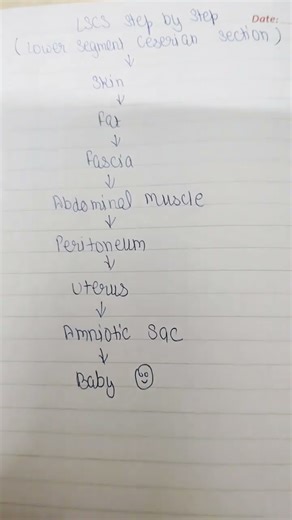 LSCS Step by Step
Date:
( lower segment Ceserian section )
↓
Skin
↓
Fat
↓
Fascia
↓
Abdominal muscle
↓
Peritoneum
↓
Uterus
↓
Amniotic Sac
↓
Baby